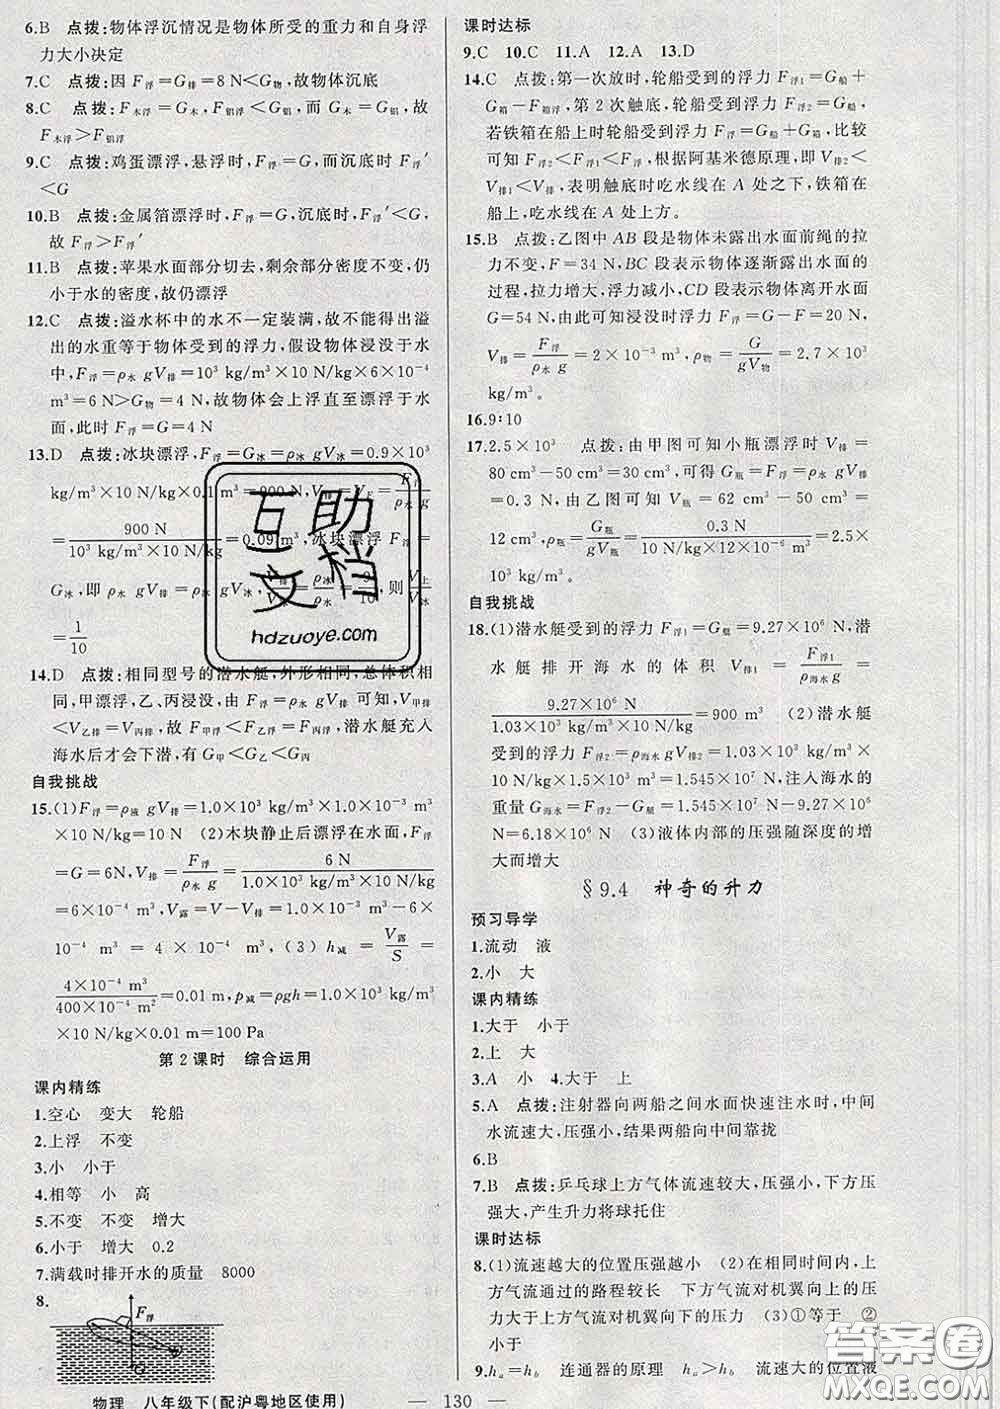 6.B 点拨:物体浮沉情况是物体所受的重力和自身浮
力大小决定
7.C 点拨:因 F浮=G排=8 N<G物,故物体沉底
8.C 点拨:F木浮=G木,F铝浮<G铝,而 G木=G铝,故
F木浮>F铝浮
9.C 点拨:鸡蛋漂浮,悬浮时,F浮=G,而沉底时 F浮′
<G
10.B 点拨:金属箔漂浮时,F浮=G,沉底时,F浮′<G,
故 F浮>F浮′
11.B 点拨:苹果水面部分切去,剩余部分密度不变,仍
小于水的密度,故仍漂浮
12.C 点拨:溢水杯中的水不一定装满,故不能得出溢
出的水重等于物体受到的浮力,假设物体浸没于水
中,则 F浮=ρ水 gV排=10³ kg/m³×10 N/kg×6×10⁻⁴
m³=6 N>G物=4 N,故物体会上浮直至漂浮于水
面,此时 F浮=G=4 N
13.D 点拨:冰块漂浮,F浮=G冰=ρ冰 gV冰=0.9×10³
kg/m³×10 N/kg×0.1 m³=900 N,V排=F浮/ρ水 g
=900 N/10³ kg/m³×10 N/kg=0.09 m³,冰块漂浮 F浮=
G冰,即 ρ水 gV排=ρ冰 gV冰,V排/V冰=ρ冰/ρ水=9/10,则V上/V冰
=1/10
14.D 点拨:相同型号的潜水艇,外形相同,总体积相
同,甲漂浮,乙、丙浸没,由 F浮=ρ水 gV排 可知,V甲排
<V乙排=V丙排,故 F甲浮<F乙浮=F丙浮,潜水艇充入
海水后才会下潜,有 G甲<G乙<G丙
自我挑战
15.(1)F浮=ρ液 gV排=1.0×10³ kg/m³×1.0×10⁻³ m³
×10 N/kg=10 N (2)木块静止后漂浮在水面,F浮
=G=6 N,V排=F浮/ρ水 g=6 N/1.0×10³ kg/m³×10 N/kg
=6×10⁻⁴ m³,V露=V−V排=1.0×10⁻³ m³−6×
10⁻⁴ m³=4×10⁻⁴ m³,(3)h减=V露/S=
4×10⁻⁴ m³/400×10⁻⁴ m²=0.01 m,p减=ρgh=1.0×10³ kg/m³
×10 N/kg×0.01 m=100 Pa
第2课时 综合运用
课内精练
1.空心 变大 轮船
2.上浮 不变
3.小 小于
4.相等 小 高
5.不变 不变 增大
6.小于 增大 0.2
7.满载时排开水的质量 8000
8.
F浮
G
物理 八年级下(配沪粤地区使用)
课时达标
9.C 10.C 11.A 12.A 13.D
14.C 点拨:第一次放时,轮船受到的浮力 F浮1=G船+
G箱−F浮箱,第2次触底,轮船受到的浮力 F浮2=G船,
若铁箱在船上时轮船受到浮力 F浮=G船+G箱,比较
可知 F浮2<F浮1<F浮,根据阿基米德原理,即 V排2
<V排1<V排,表明触底时吃水线在 A 处之下,铁箱在
船上,吃水线在 A 处上方。
15.B 点拨:乙图中 AB 段是物体未露出水面前绳的拉
力不变,F=34 N,BC 段表示物体逐渐露出水面的
过程,拉力增大,浮力减小,CD 段表示物体离开水面
G=54 N,由此可知浸没时浮力 F浮=G−F=20 N,
V排=F浮/ρ水 g=2×10⁻³ m³,ρ物=G/gV物=2.7×10³
kg/m³。
16.9∶10
17.2.5×10³ 点拨:由甲图可知小瓶漂浮时 V排=
80 cm³−50 cm³=30 cm³,可得 G瓶=F浮=ρ水 gV排
=0.3 N,由乙图可知 V瓶=62 cm³−50 cm³=
12 cm³,ρ瓶=G瓶/gV瓶=0.3 N/10 N/kg×12×10⁻⁶ m³=2.5×
10³ kg/m³。
自我挑战
18.(1)潜水艇受到的浮力 F浮1=G艇=9.27×10⁶ N,潜
水艇排开海水的体积 V排1=F浮1/ρ海水g=
9.27×10⁶ N/1.03×10³ kg/m³×10 N/kg=900 m³ (2)潜水艇
受到的浮力 F浮2=ρ海水 gV排2=1.03×10³ kg/m³×
10 N/kg×1.5×10³ m³=1.545×10⁷ N,注入海水的
重量 G海水=F浮2−G艇=1.545×10⁷ N−9.27×10⁶
N=6.18×10⁶ N (3)液体内部的压强随深度的增
大而增大
§9.4 神奇的升力
预习导学
1.流动 液
2.小 大
课内精练
1.大于 小于
2.上 大
3.A 小 4.大于 上
5.A 点拨:注射器向两船之间水面快速注水时,中间
水流速大,压强小,结果两船向中间靠拢
6.B
7.B 点拨:乒乓球上方气体流速较大,压强小,下方压
强大,产生升力将球托住
课时达标
8.(1)流速越大的位置压强越小 (2)在相同时间内,上
方气流通过的路程较长 下方气流对机翼向上的压
力大于上方气流对机翼向下的压力 (3)①等于 ②
小于
9.ha=hb 连通器的原理 ha>hb 流速大的位置液
— 130 —
互助
文档
hdzuoye.com
答案圈
MXQE.COM